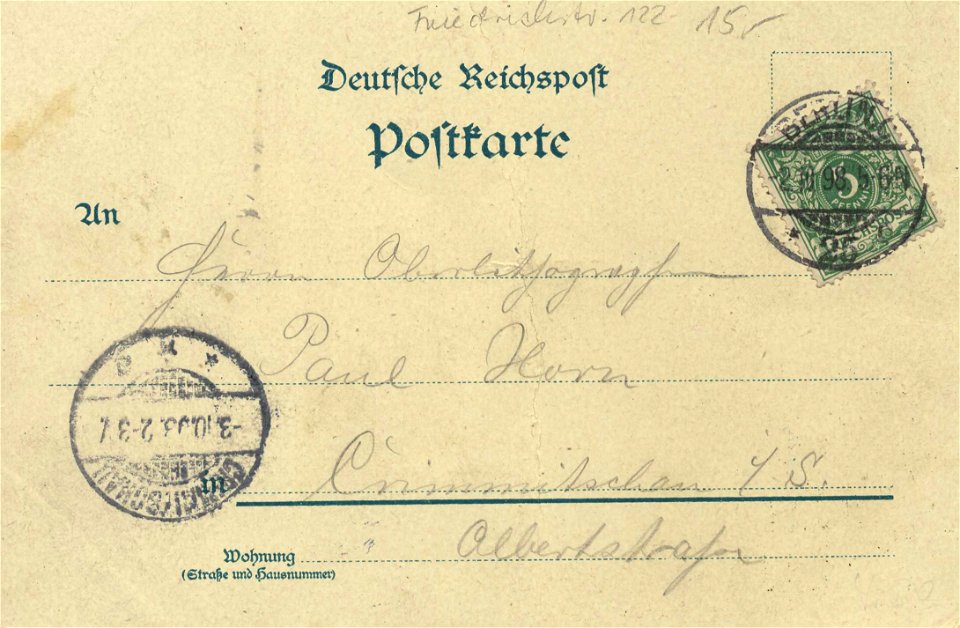 Friedrichstr. 122 15,-
Deutsche Reichspost
Postkarte
BERLIN
2.10.98. 5-6N
REICHSPOST
5
PFENNIG
An
Herrn Oberlithograph
Paul Horn
3.10.98. 2-3
CRIMMITSCHAU
in Crimmitschau i/S.
Albertstraße
Wohnung
(Straße und Hausnummer)